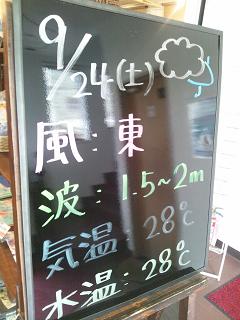 9/24(土)
風:東
波:1.5~2m
気温:28℃
水温:28℃